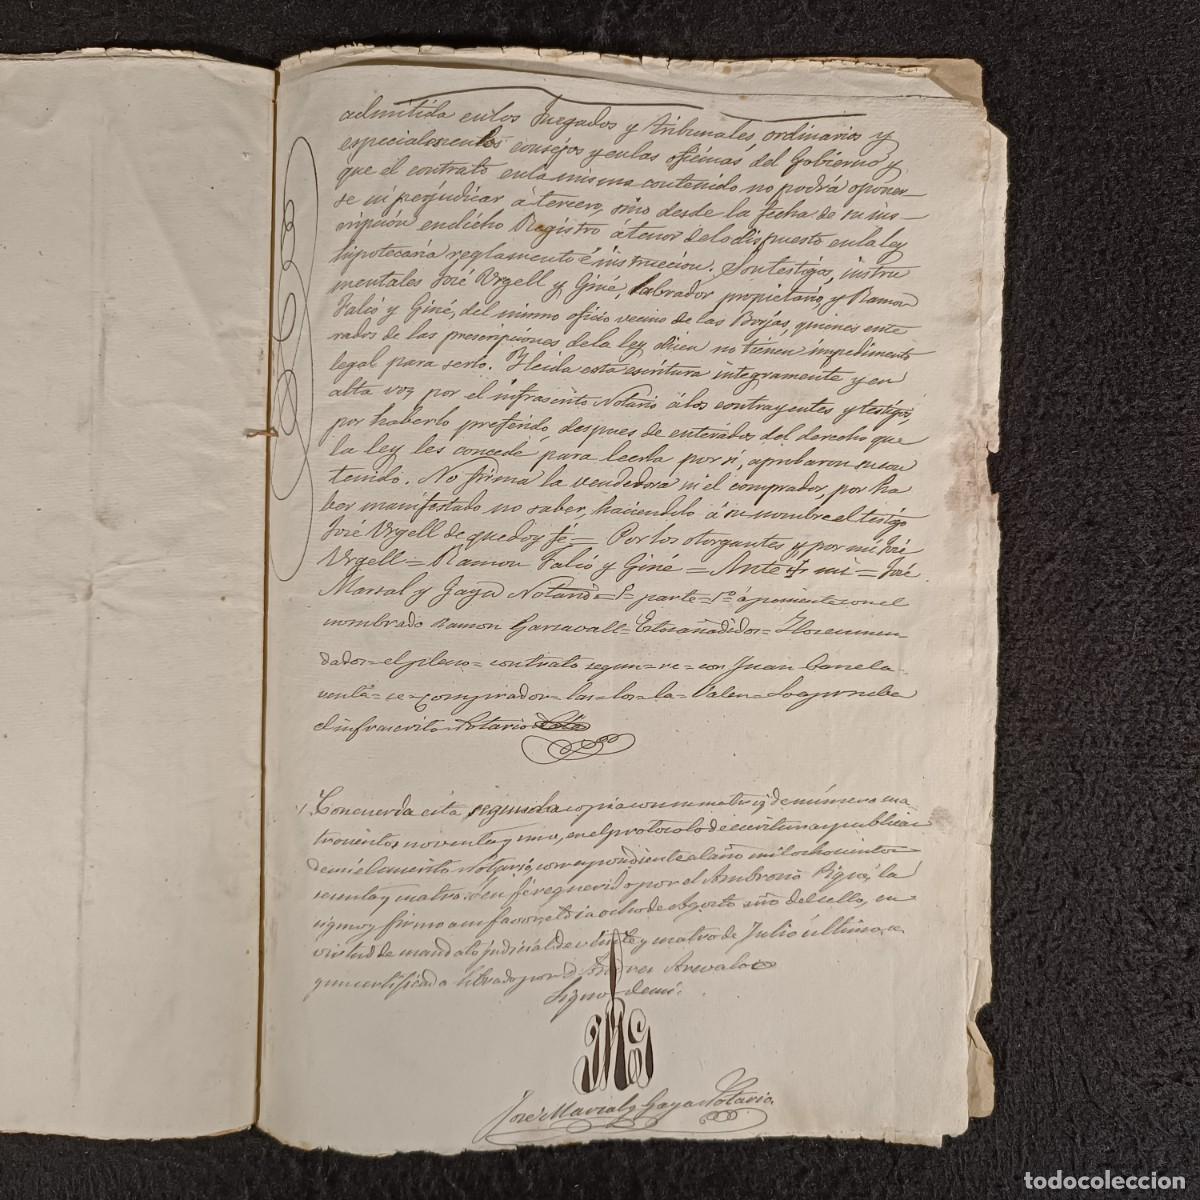 admitida en los Juzgados y tribunales ordinarios y
especiales en los consejos y en las oficinas del Gobierno y
que el contrato en la misma contenido no podrá oponer-
se ni perjudicar á tercero, sino desde la fecha de su ins-
cripción en dicho Registro á tenor de lo dispuesto en la ley
hipotecaria reglamento é instrucción. Son testigos, instru
mentales José Urgell y Giné, labrador propietario, y Ramon
Falió y Giné, del mismo oficio vecino de las Borjas, quienes ente
rados de las prescripciones de la ley dicen no tienen impedimento
legal para serlo. Y leida esta escritura integramente y en
alta voz por el infrascrito Notario á los contrayentes y testigos,
por haberlo preferido, despues de enterados del derecho que
la ley les concede para leerla por sí, aprobaron su con
tenido. No firma la vendedora ni el comprador, por ha
ber manifestado no saber, haciendolo á su nombre el testigo
José Urgell de que doy fé = Por los otorgantes y por mi José
Urgell = Ramon Falió y Giné = Ante mi = José
Marsal y Gaya Notario = 
nombrado Ramon = 
dados = el pleno = contrato segun = re = con Juan 
venta = se = comprador = las = los = la = = Lo aprueba
el infrascrito Notario
Concuerda esta segunda copia con su matriz de número cua
trocientos noventa y uno, en el protocolo de escrituras publicas
de mi el Notario, correspondiente al año mil ochocientos
sesenta y cuatro. En fé requerido por el Ambrosio Piqué, la
signo y firmo dia ocho de Agosto año del sello, en
virtud de mandato judicial de veinte y cuatro de Julio último,
que certificado librado por D. Andres Arevalo
Signo de mí.
José Marsal y Gaya Notario.
todocoleccion